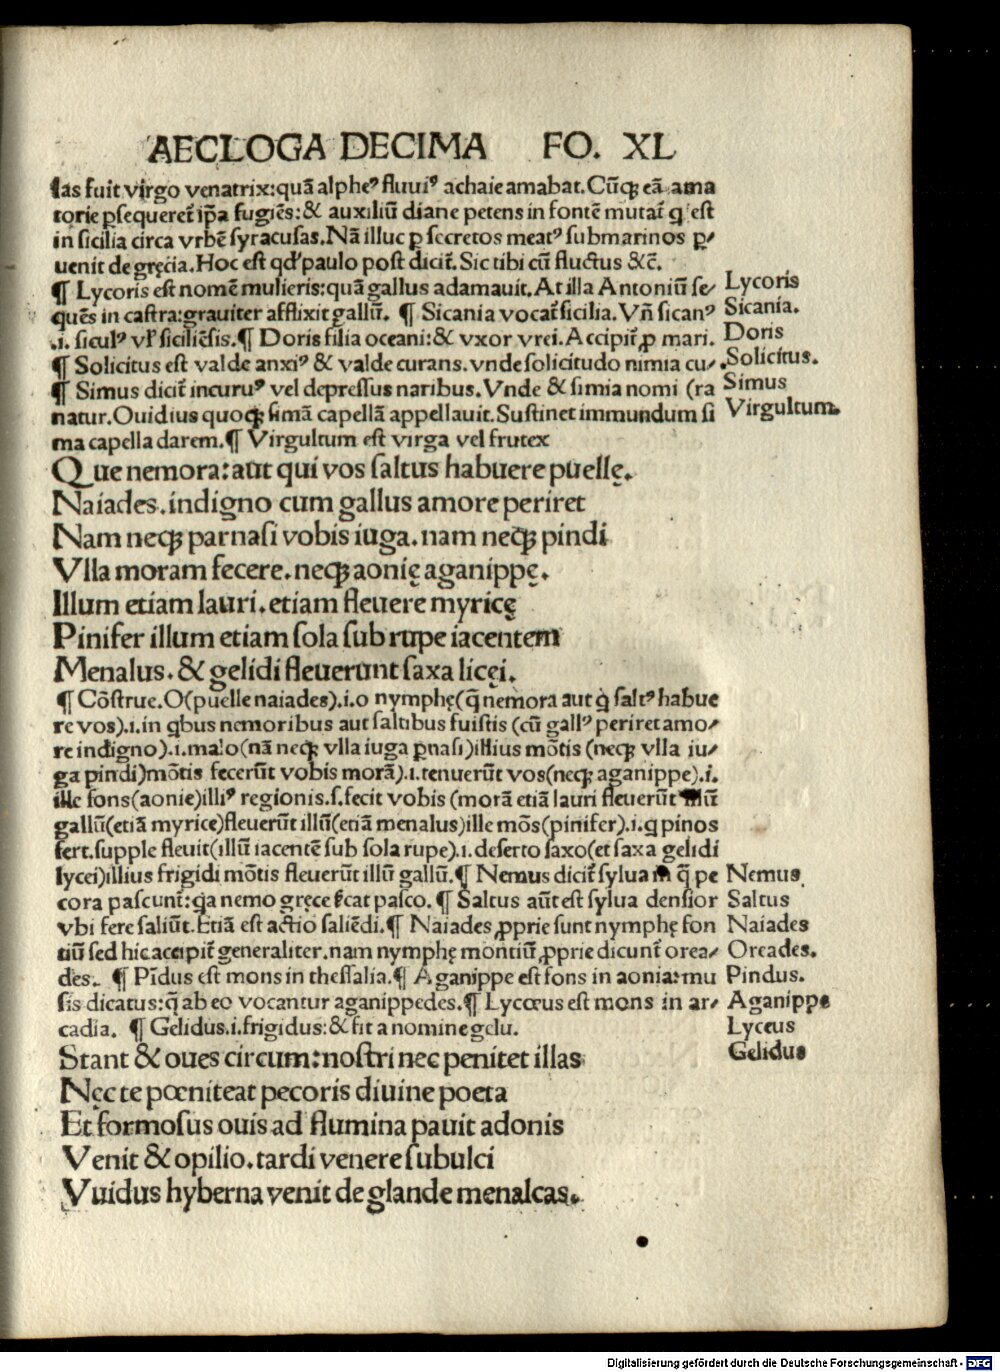 AECLOGA DECIMA FO. XL
ſas fuit virgo venatrix:quã alpheꝰ fluuiꝰ achaie amabat.Cũqꝫ eã ama
torie ꝑſequereť iꝑa fugiẽs:& auxiliũ diane petens in fontẽ mutať q eſt
in ſicilia circa vrbẽ ſyracuſas.Nã illuc ꝑ ſecretos meatꝰ ſubmarinos ꝑ/
uenit de gręcia.Hoc eſt qd' paulo poſt diciť.Sic tibi cũ fluctus &č.
¶ Lycoris eſt nomẽ mulieris:quã gallus adamauit.At illa Antoniũ ſe/ Lycoris
quẽs in caſtra:grauiter afflixit gallũ. ¶ Sicania vocať ſicilia. Vñ ſicanꝰ Sicania.
.i. ſiculꝰ vľ ſiciliẽſis.¶ Doris filia oceani:& vxor vrei.Accipiť ꝓ mari. Doris
¶ Solicitus eſt valde anxiꝰ & valde curans.vnde ſolicitudo nimia cu/ .Solicitus.
¶ Simus diciť incuruꝰ vel depreſſus naribus.Vnde & ſimia nomi (ra Simus
natur.Ouidius quoqꝫ ſimã capellã appellauit.Suſtinet immundum ſi Virgultum.
ma capella darem.¶ Virgultum eſt virga vel frutex
Que nemora:aut qui vos ſaltus habuere puellę.
Naiades.indigno cum gallus amore periret
Nam neqꝫ parnaſi vobis iuga.nam neqꝫ pindi
Vlla moram fecere.neqꝫ aonię aganippę.
Illum etiam lauri.etiam fleuere myricę
Pinifer illum etiam ſola ſub rupe iacentem
Menalus.& gelidi fleuerunt ſaxa licęi.
¶ Cõſtrue.O(puelle naiades).i.o nymphę(q̃ nemora aut q̇ ſaltꝰ habue
re vos).i.in qbus nemoribus aut ſaltibus fuiſtis (cũ gallꝰ periret amo/
re indigno).i.malo(nã neqꝫ vlla iuga ꝑnaſi)illius mõtis (neqꝫ vlla iu/
ga pindi)mõtis fecerũt vobis morã).i.tenuerũt vos(neqꝫ aganippe).i.
ille fons(aonie)illiꝰ regionis.ſ.fecit vobis (morã etiã lauri fleuerũt illũ
gallũ(etiã myrice)fleuerũt illũ(etiã menalus)ille mõs(pinifer).i.q pinos
fert.ſupple fleuit(illũ iacentẽ ſub ſola rupe).i.deſerto ſaxo(et ſaxa gelidi
lycei)illius frigidi mõtis fleuerũt illũ gallũ.¶ Nemus diciť ſylua in q̃ pe Nemus
cora paſcunť:qa nemo gręce ſ̌cat paſco. ¶ Saltus aũt eſt ſylua denſior Saltus
vbi fere ſaliũt.Etiã eſt actio ſaliẽdi.¶ Naiades ꝓprie ſunt nymphę fon Naiades
tiũ ſed hic accipiť generaliter.nam nymphę montiũ ꝓprie dicunť orea/ Oreades.
des. ¶ Pĩdus eſt mons in theſſalia.¶ Aganippe eſt fons in aonia:mu Pindus.
ſis dicatus:q̃ ab eo vocantur aganippedes.¶ Lycœus eſt mons in ar/ Aganippe
cadia. ¶ Gelidus.i.frigidus:& fit a nomine gelu. Lyceus
Gelidus
Stant & oues circum:noſtri nec penitet illas
Nęc te pœniteat pecoris diuine poeta
Et formoſus ouis ad flumina pauit adonis
Venit & opilio.tardi venere ſubulci
Vuidus hyberna venit de glande menalcas.
Digitalisierung gefördert durch die Deutsche Forschungsgemeinschaft - DFG